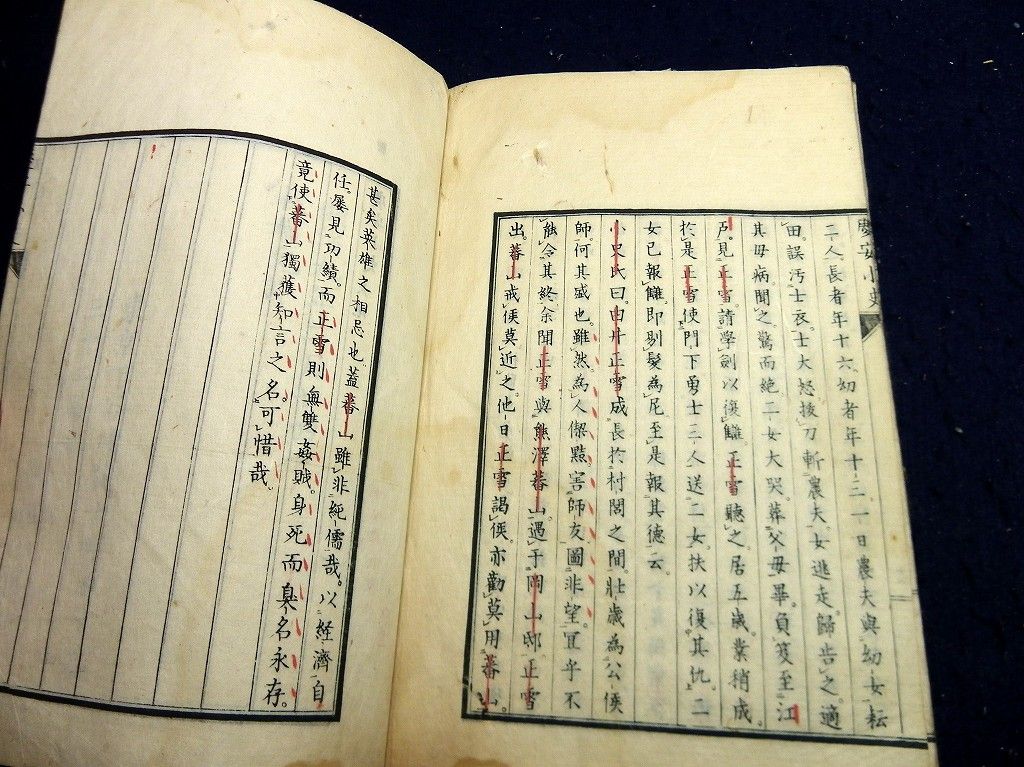 慶安小史
二人。長者年十六。幼者年十三。一日農夫與幼女耘
田。誤汚士衣。士大怒。拔刀斬農夫。女逃走。歸告之。適
其母病。聞之。驚而絶。二女大哭。葬父母畢。負笈至江
戸。見正雪。請學劍以復讎。正雪聽之。居五歳。業稍成。
於是正雪使門下勇士三人送二女。扶以復其仇。二
女已報讎。即剔髮為尼。至是報其德云。
小史氏曰。由井正雪成長於村閭之間。壯歳為公侯
師。何其盛也。雖然。為人傑黠。害師友圖非望。冝乎不
能令其終。余聞正雪與熊澤蕃山。遇于岡山邸。正雪
出。蕃山戒侯莫近之。他日正雪謁侯。亦勸莫用蕃山。
甚矣英雄之相忌也。蓋蕃山雖非純儒哉。以経濟自
任。屡見功績。而正雪則無雙姦賊。身死而臭名永存。
竟使蕃山獨獲知言之名。可惜哉。